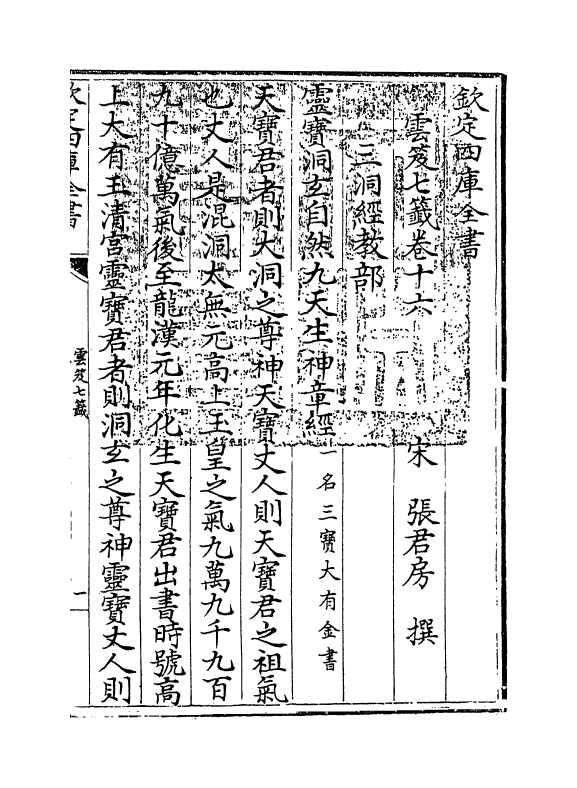 欽定四庫全書
雲笈七籤卷十六
宋 張君房 撰
三洞經教部
靈寶洞玄自然九天生神章經一名三寶大有金書
天寶君者則大洞之尊神天寶丈人則天寶君之祖氣
也丈人是混洞太無元高上玉皇之氣九萬九千九百
九十億萬氣後至龍漢元年化生天寶君出書時號高
上大有玉清宮靈寶君者則洞玄之尊神靈寶丈人則
欽定四庫全書
雲笈七籤
一